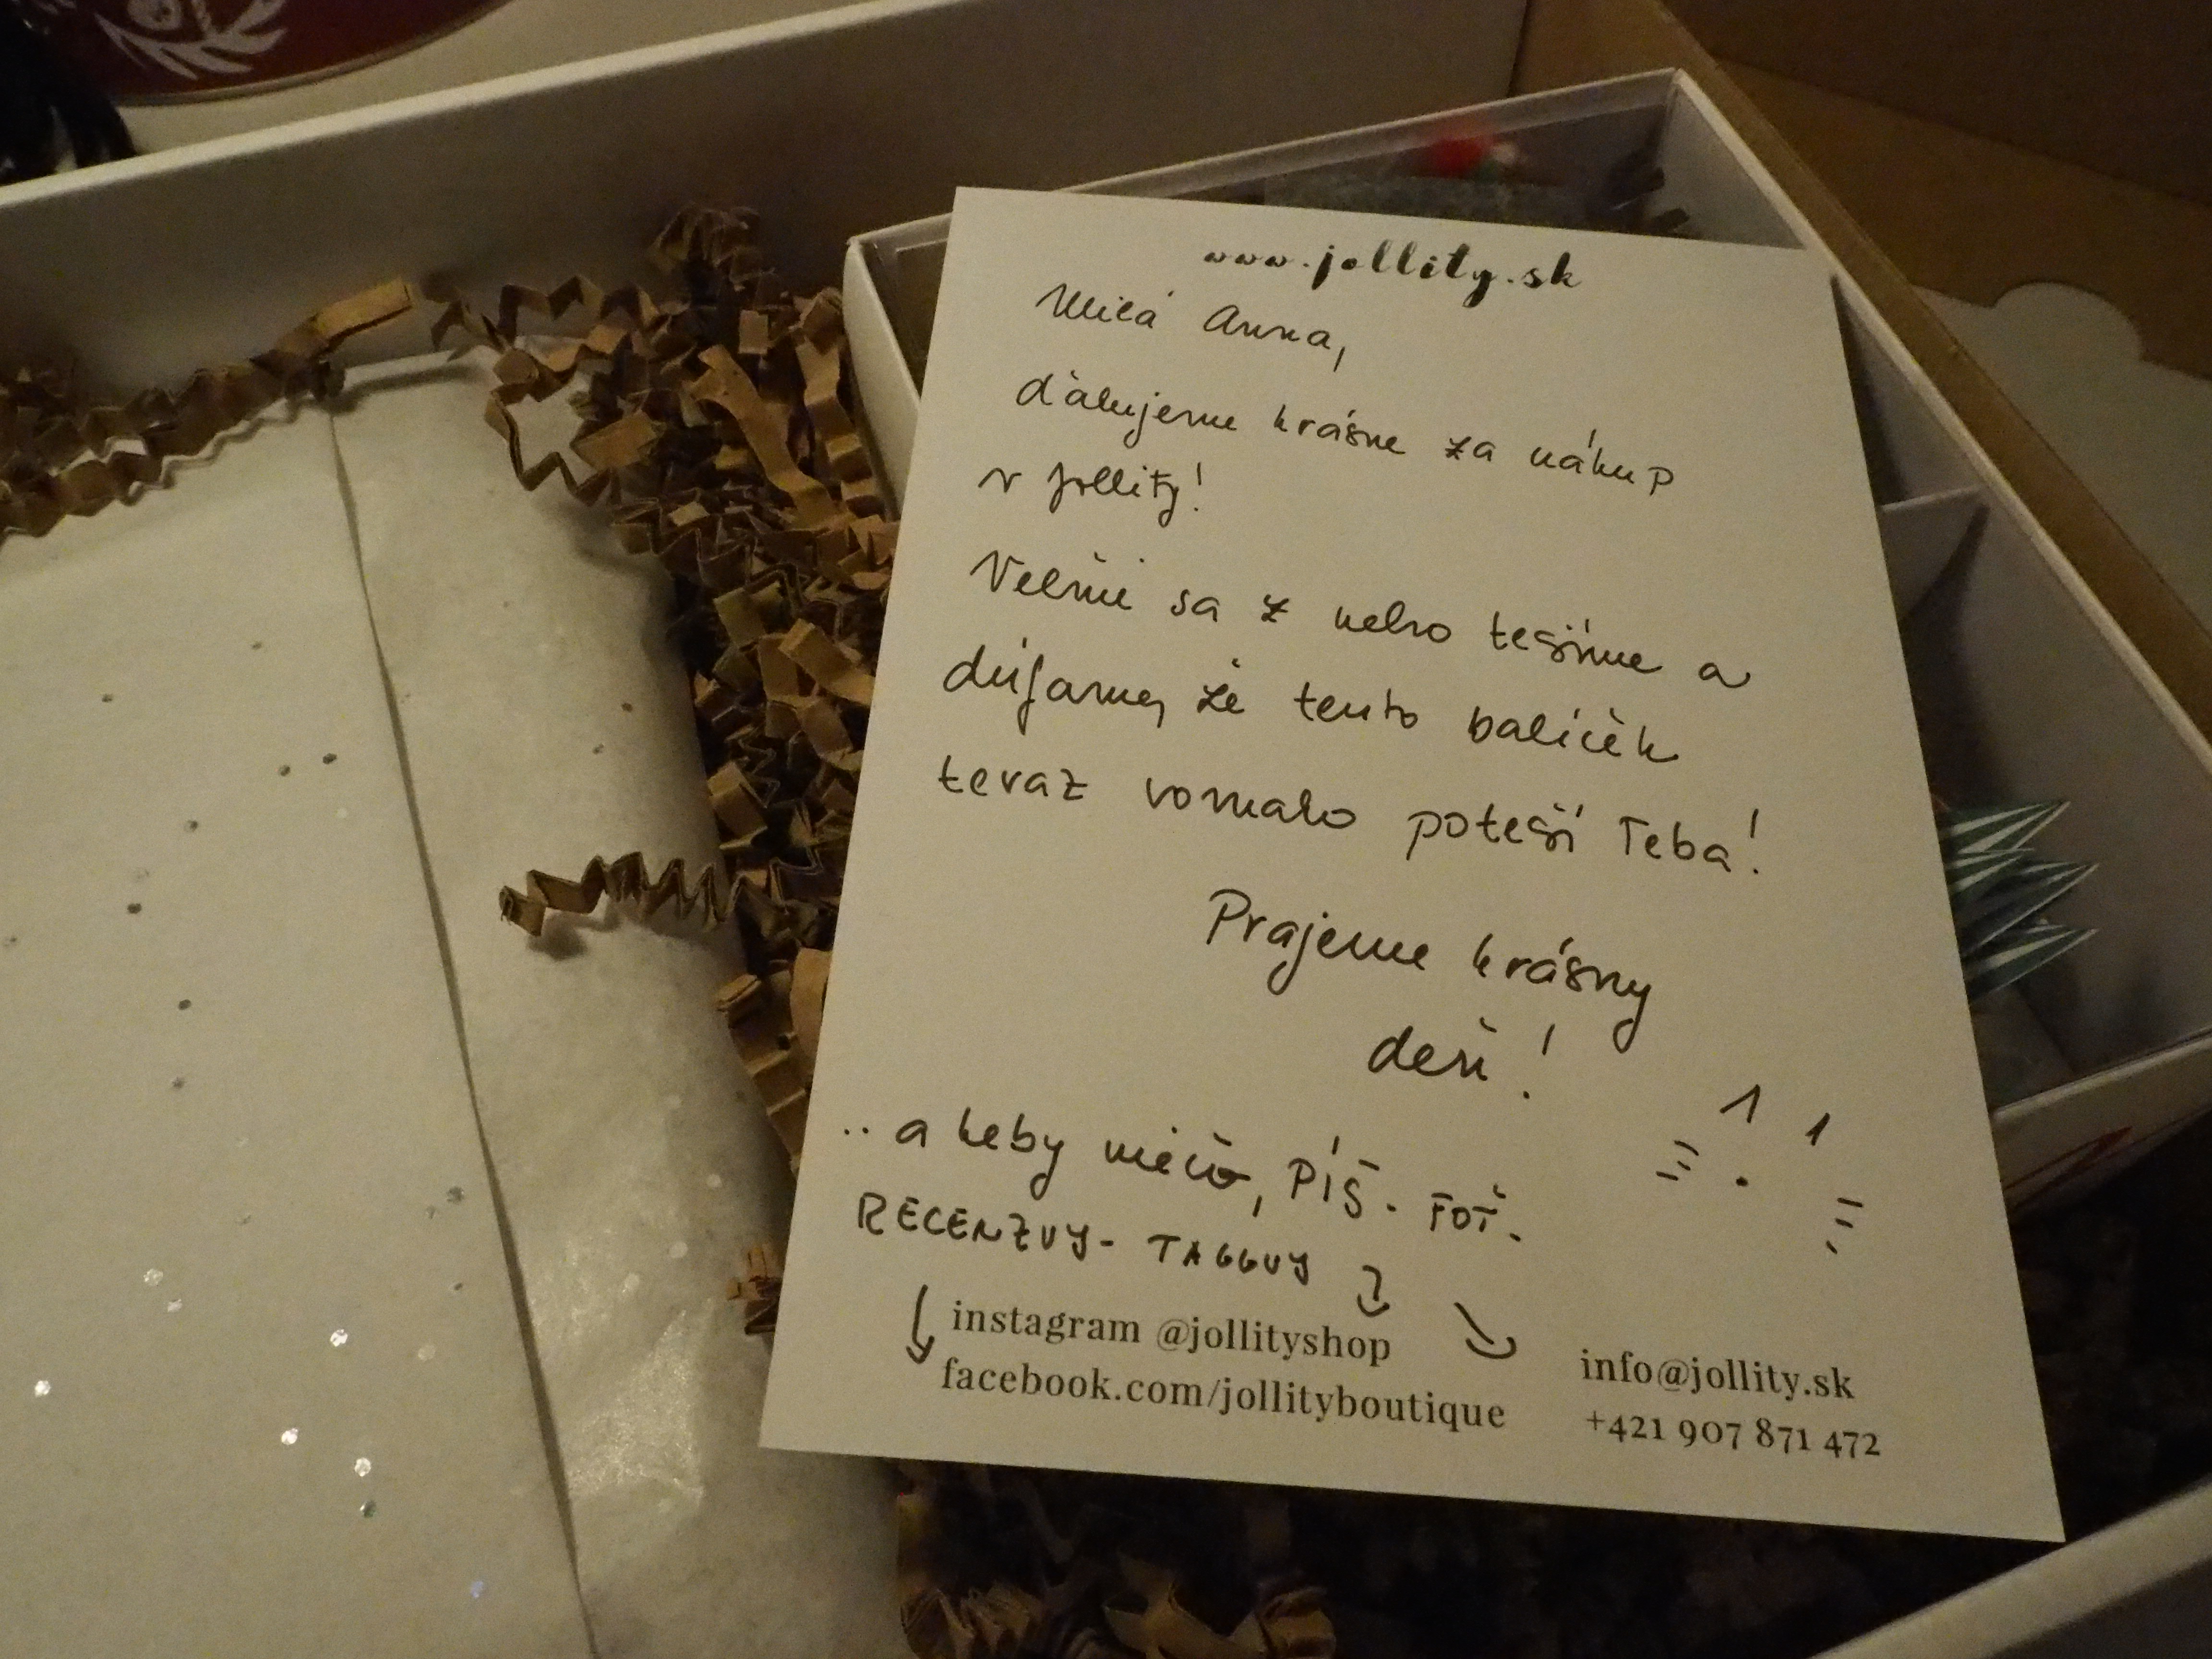 www.jollity.sk
Milá Anna,
ďakujeme krásne za nákup
v Jollity!
Veľmi sa z neho tešíme a
dúfame, že tento balíček
teraz romako poteší Teba!
Prajeme krásny
deň!
.. a keby niečo, PÍŠ. FOŤ.
RECENZUJ. TAGGUJ
instagram @jollityshop
facebook.com/jollityboutique
info@jollity.sk
+421 907 871 472